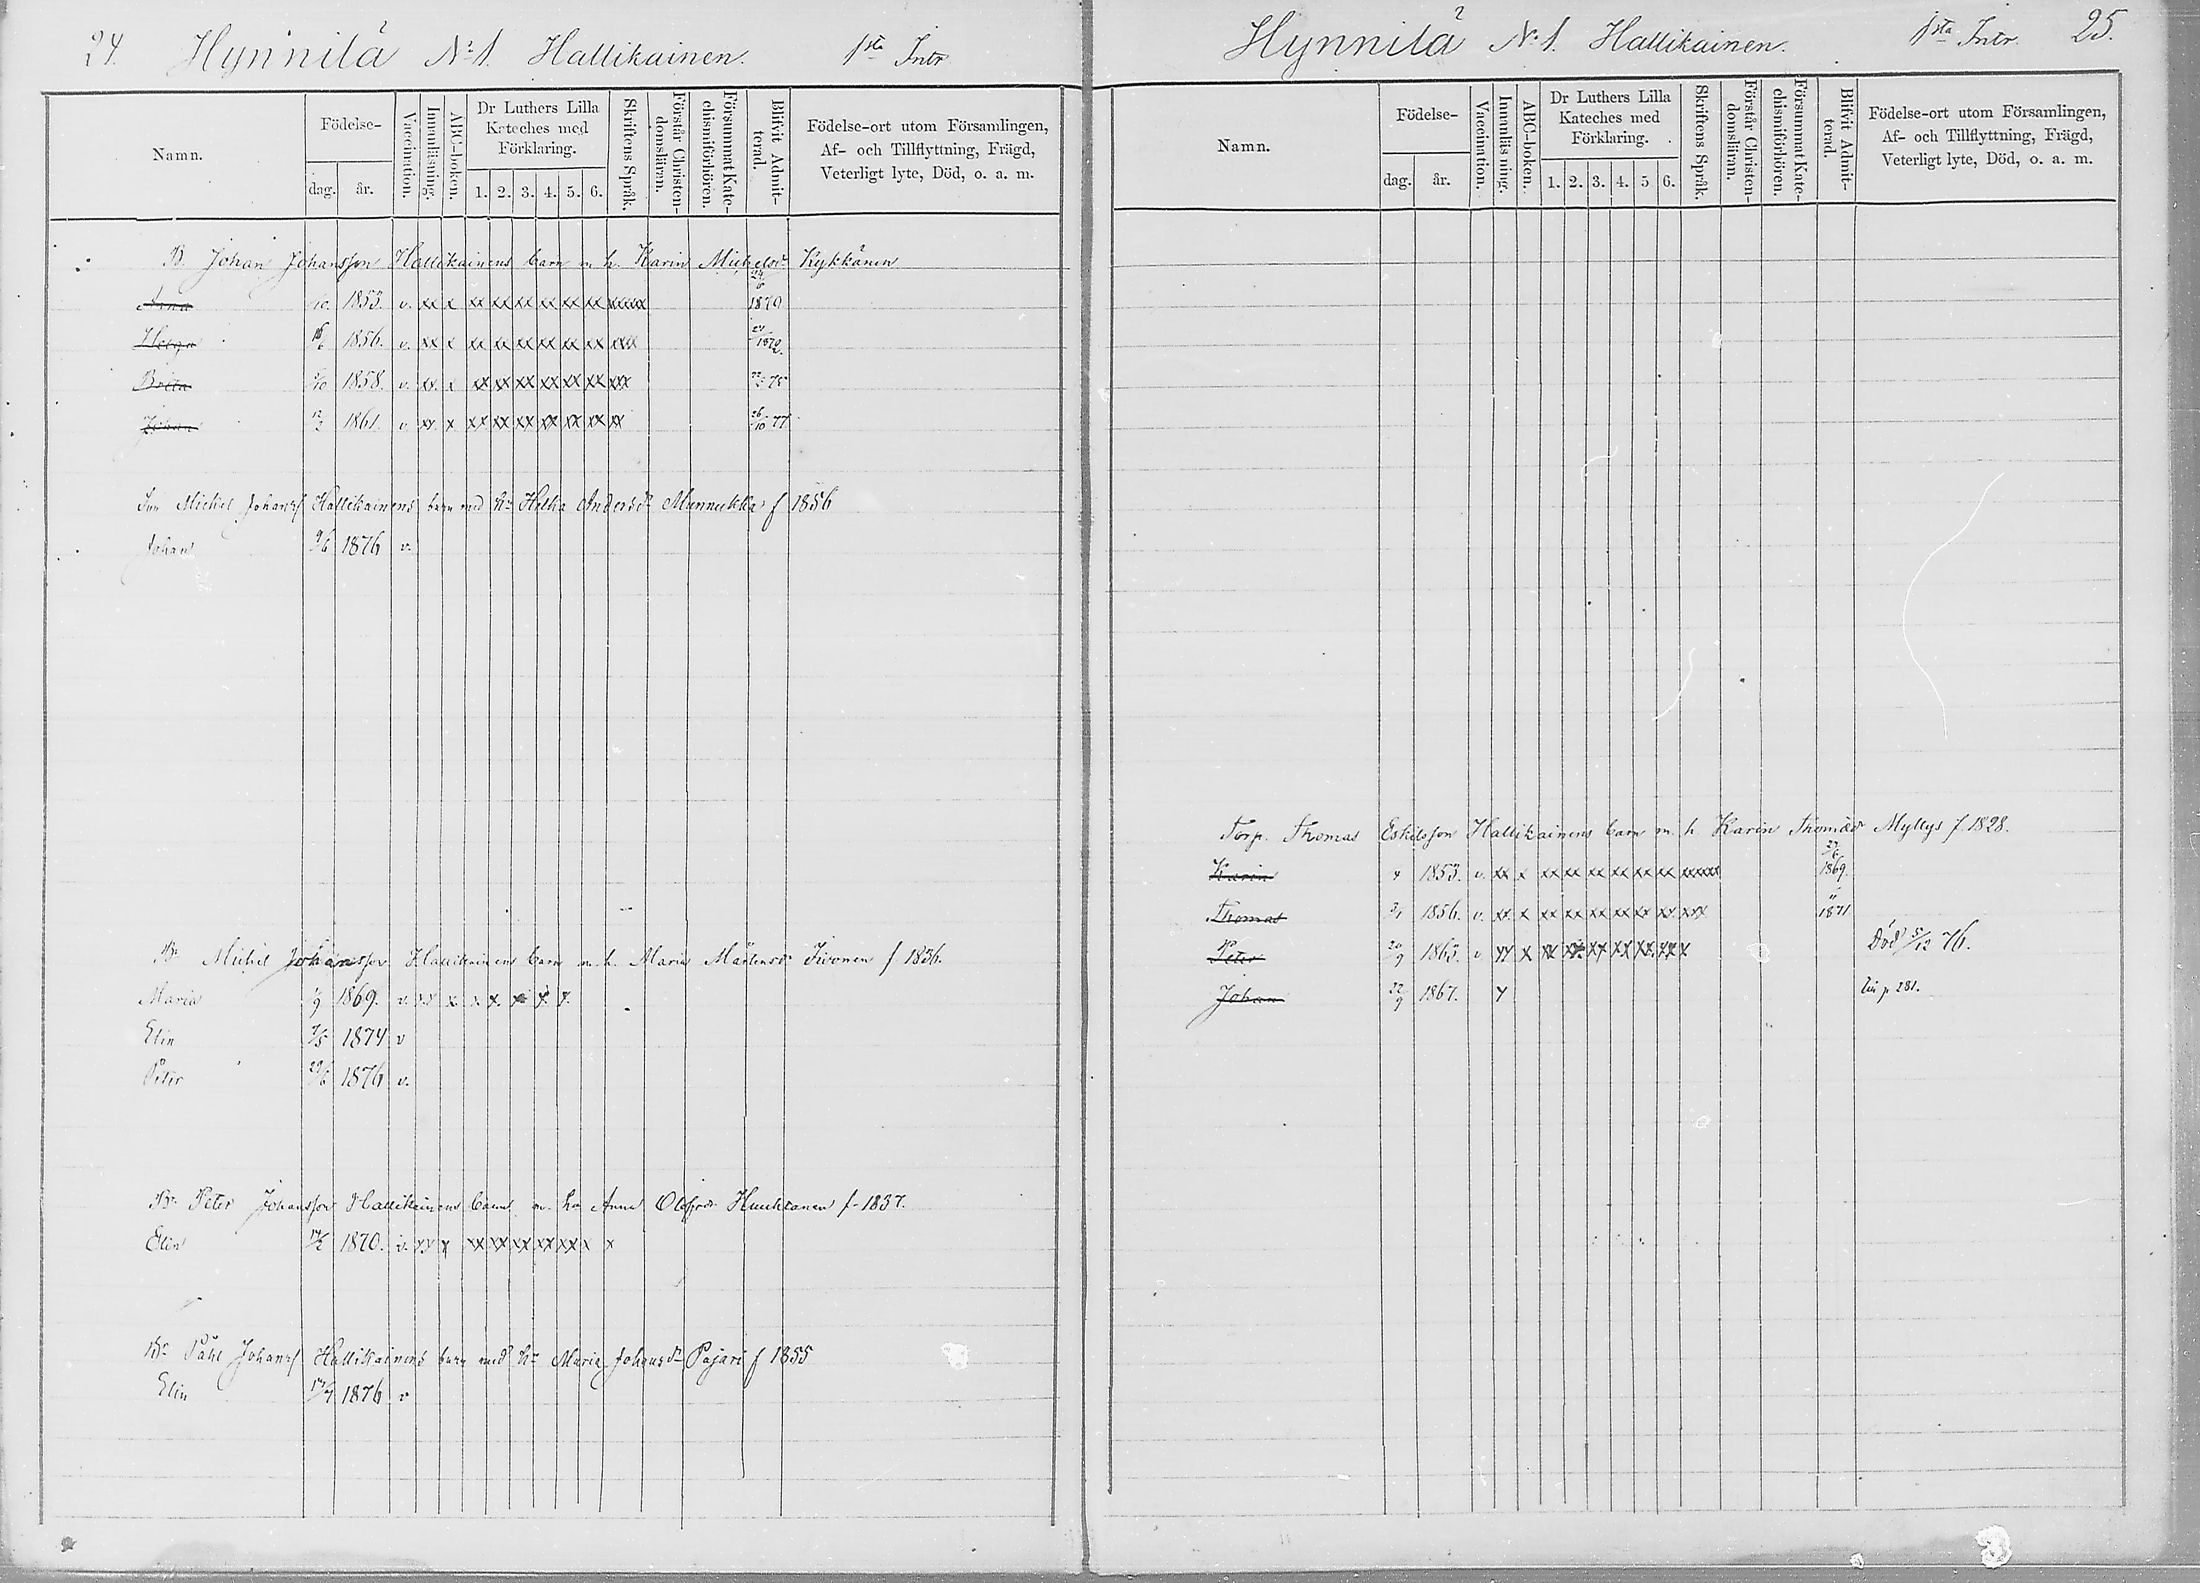 24. Hynnilä No 1. Hallikainen. 1sta Intr
Namn.
Födelse-
dag. år.
Vaccination.
Innanläsning.
ABC-boken.
Dr Luthers Lilla Kateches med Förklaring.
1. 2. 3. 4. 5. 6.
Skriftens Språk.
Förstår Christendomsläran.
Försummat Katechismiförhören.
Blifvit Admitterad.
Födelse-ort utom Församlingen,
Af- och Tillflyttning, Frägd,
Veterligt lyte, Död, o. a. m.
B. Johan Johansson Hallikainens barn m. h. Karin Michelsdr Kykkänen
Anna 1853. v. xx x xx xx xx xx xx xx xxxxx 24/6 1870
Helga 1856. v. xx x xx xx xx xx xx xx xxx 1872.
Brita 1858. v. xx. x xx xx xx xx xx xx xxx 75
Johan 12/2 1861. v xx. x xx xx xx xx xx xx xx 26/10 77
Inh Michel Johansf Hallikainens barn med hu Helka Andersdr Munnukka f 1856
Johan 9/6 1876 v.
Br Michel Johansson Hallikainens barn m. h. Maria Mårtensdr Iivonen f 1836.
Maria 1869. v. xx x x. x. x x. x.
Elin 7/5 1874 v
Peter 29/6 1876 v.
Br Peter Johansson Hallikainens barn m. hu Anna Olofsdr Huuhtanen f. 1837.
Elin 17/2 1870. v. xx x xx xx xx xx xx x x
Br Påhl Johansf Hallikainens barn med hu Maria Johansdr Pajari f 1855
Elin 1876 v
Hynnilä No 1. Hallikainen. 1sta Intr. 25.
Namn.
Födelse-
dag. år.
Vaccination.
Innanläs ning.
ABC-boken.
Dr Luthers Lilla Kateches med Förklaring.
1. 2. 3. 4. 5 6.
Skriftens Språk.
Förstår Christendomsläran.
Försummat Katechismiförhören.
Blifvit Admitterad.
Födelse-ort utom Församlingen,
Af- och Tillflyttning, Frägd,
Veterligt lyte, Död, o. a. m.
Torp. Thomas Eskilsson Hallikainens barn m. h. Karin Thomasdr Myllys f. 1828.
Karin 4 1853. v. xx x xx xx xx xx xx xx xxxxx 1869.
Thomas 3/1 1856. v. xx. x xx xx xx xx xx xx. xxx 1871
Peter 20/9 1863. v xx x xx xx xx xx xx. xx x Död 5/12 76.
Johan 22/9 1867. x p 281.